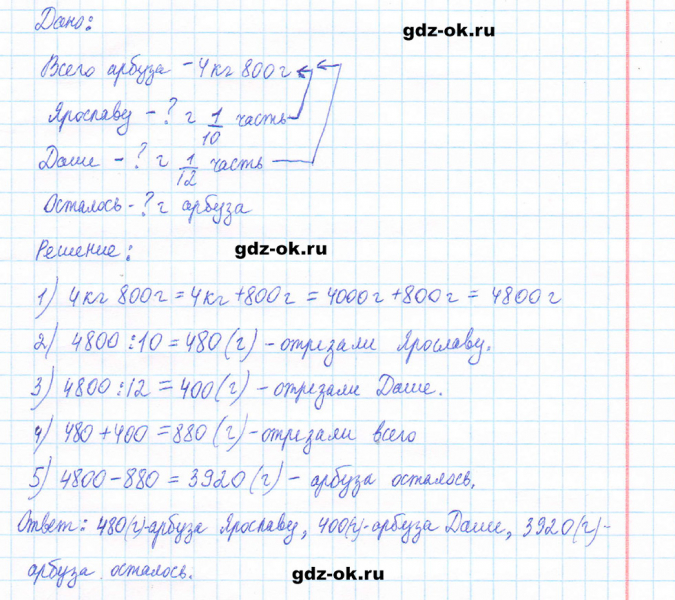 Дано:
gdz-ok.ru
Всего арбуза - 4кг 800г
Ярославу - ? г 1/10 часть
Даше - ? г 1/12 часть
Осталось - ? г арбуза
Решение:
gdz-ok.ru
1) 4кг 800г = 4кг + 800г = 4000г + 800г = 4800г
2) 4800 : 10 = 480 (г) - отрезали Ярославу.
3) 4800 : 12 = 400 (г) - отрезали Даше.
4) 480 + 400 = 880 (г) - отрезали всего
5) 4800 - 880 = 3920 (г) - арбуза осталось.
Ответ: 480(г)-арбуза Ярославу, 400(г)-арбуза Даше, 3920(г)-
арбуза осталось.
gdz-ok.ru